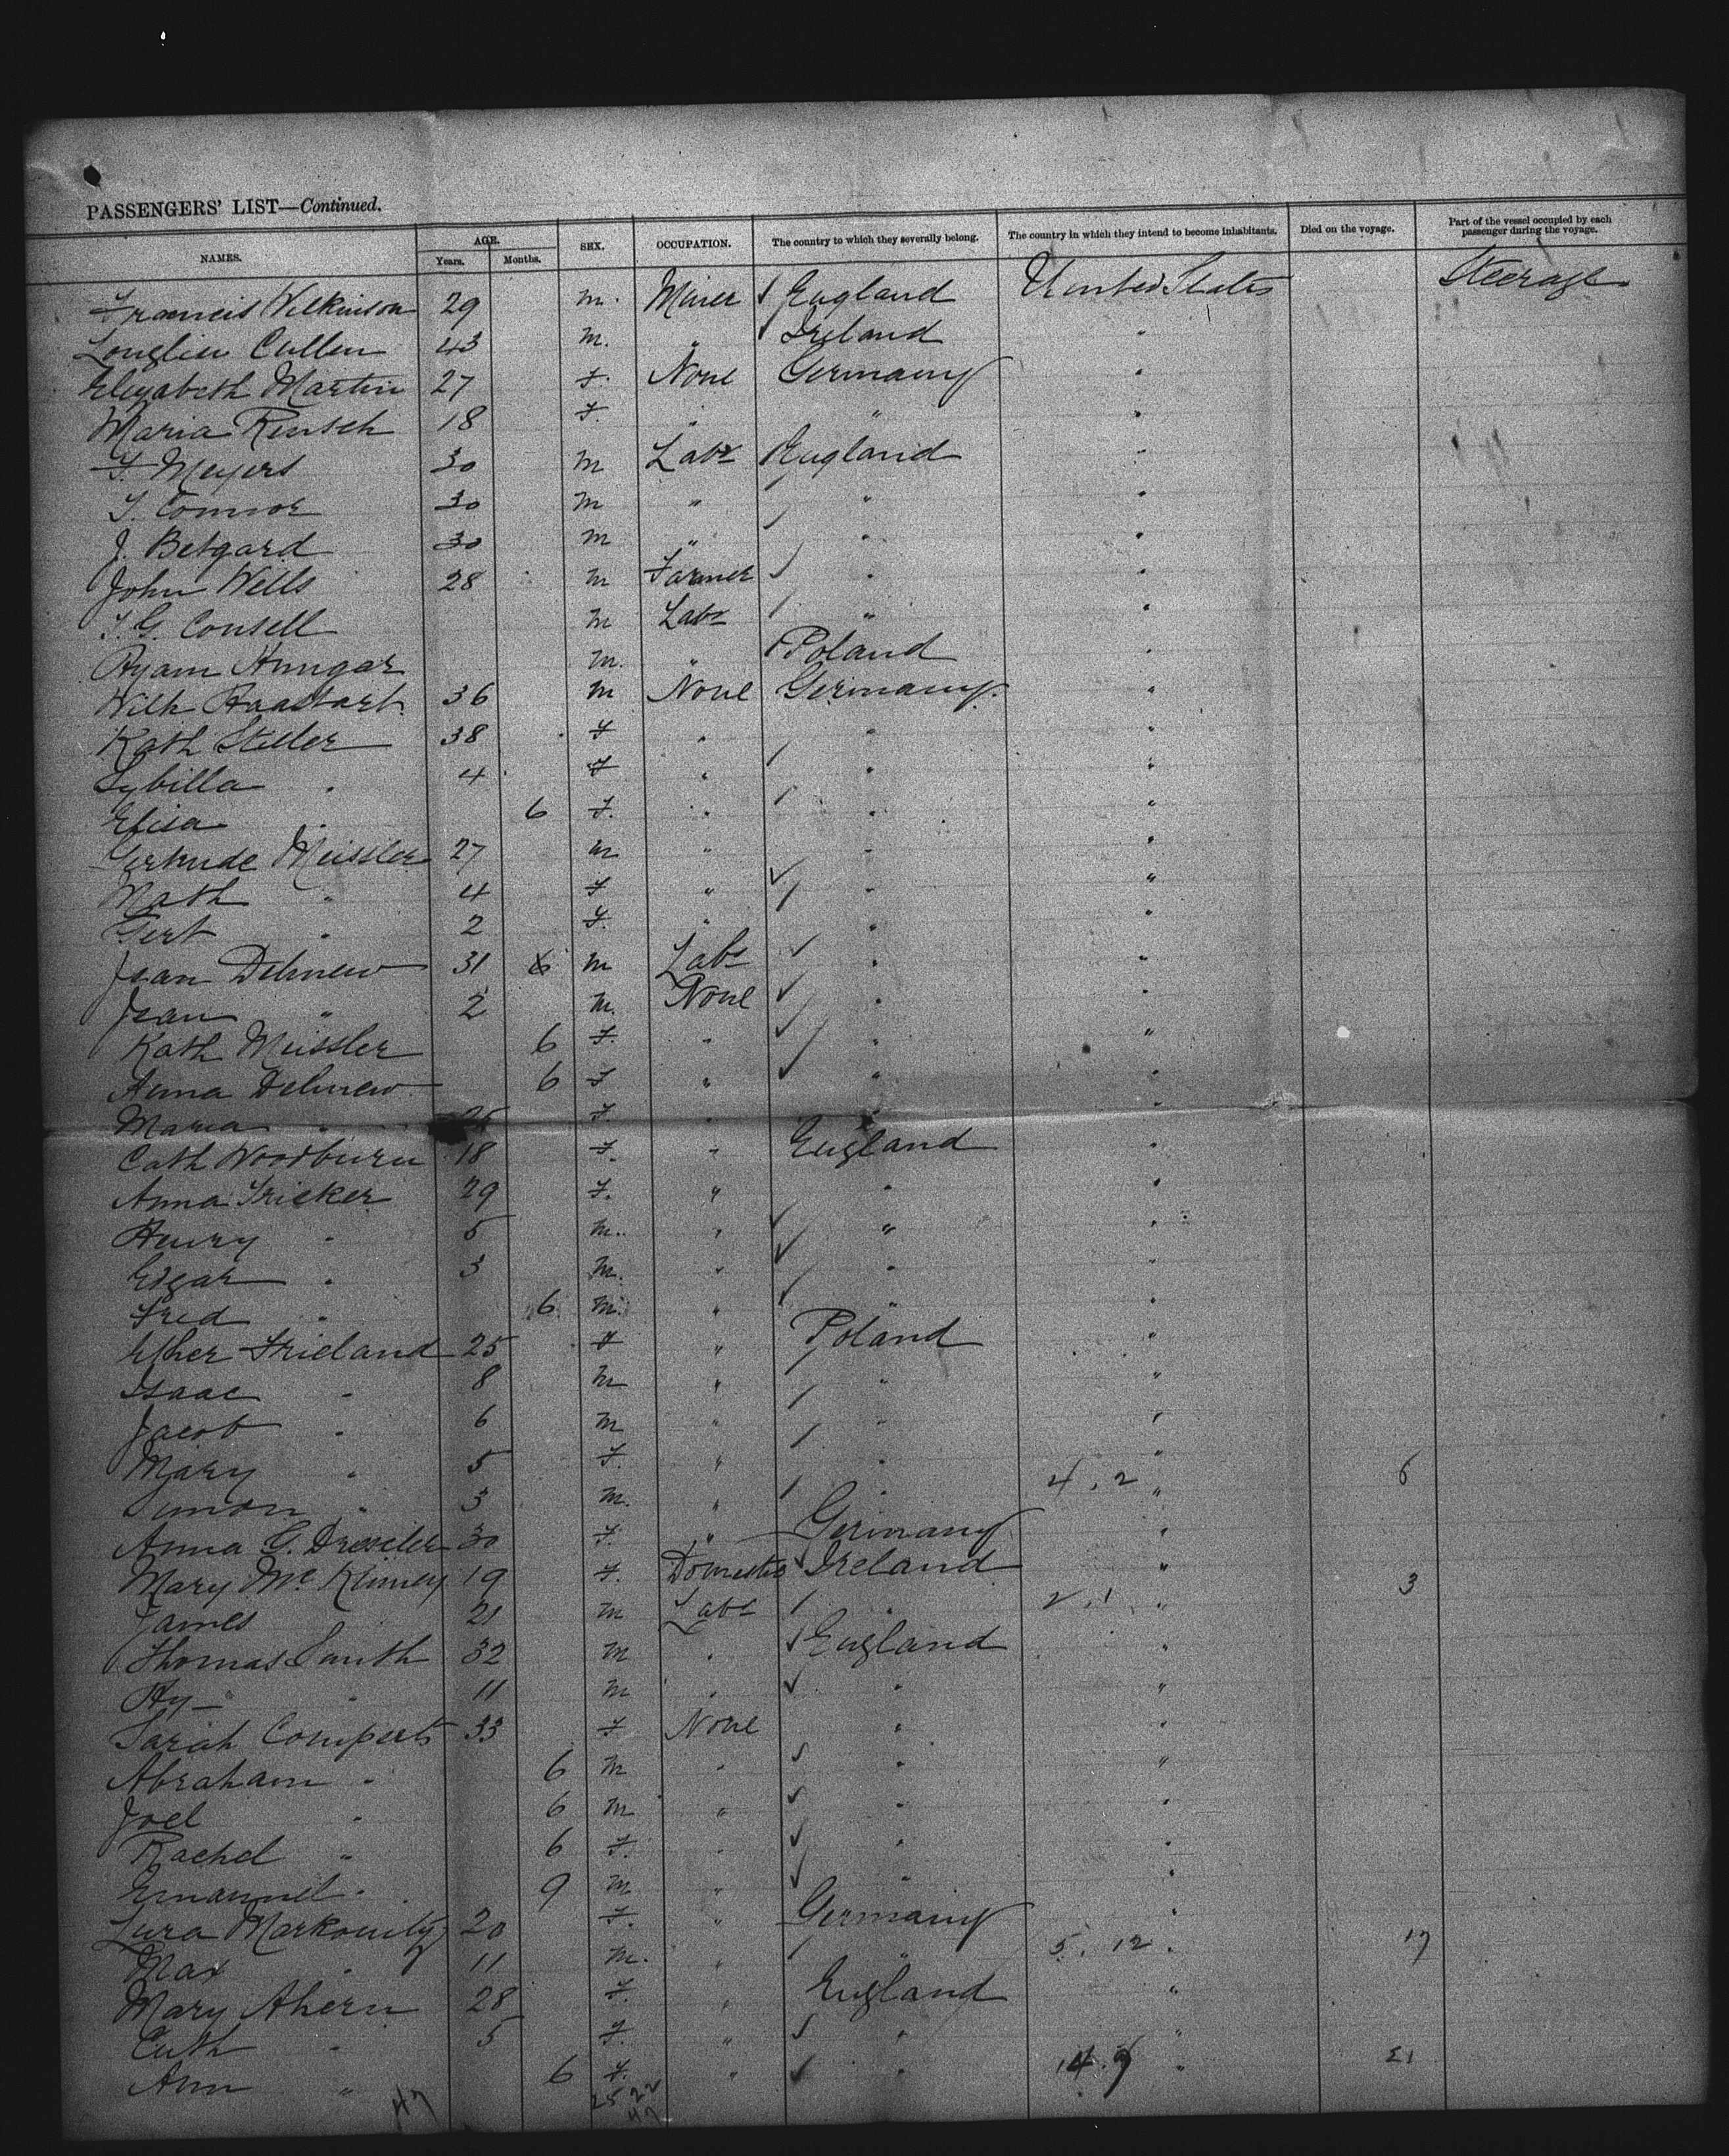 PASSENGERS' LIST—Continued.
NAMES. AGE. Years. Months. SEX. OCCUPATION. The country to which they severally belong. The country in which they intend to become inhabitants. Died on the voyage. Part of the vessel occupied by each passenger during the voyage.
Francis Wilkinson 29 m. Miner ✓ England United States Steerage
Loughlin Cullen 43 m. " ✓ Ireland "
Elizabeth Martin 27 F. None Germany "
Maria Rensch 18 F. " " "
F. Meyers 30 m Labr / England "
T. Connor 30 m " / " "
J. Betgard 30 m " / " "
John Wells 28 m Farmer ✓ " "
T. G. Consell m Labr / " "
Hungar m. " / Poland "
Wilh 36 m None Germany. "
Kath Steller 38 F " " "
Sybilla " 4 F " / " "
Elisa " 6 F. " / " "
Gertrude Meissler 27 m " " "
Math " 4 F " ✓ " "
Gert " 2 F. " / " "
Jean Delmew 31 m Labr ✓ " "
Jean " 2 m. None ✓ " "
Kath Meissler 6 F. " ✓ " "
Anna Delmew 6 F " ✓ " "
Maria " F. " " "
Cath Woodburn 18 F. " England "
Anna Tricker 29 F. " " "
Henry " 5 m. " ✓ " "
Edgar " 3 m. " ✓ " "
Fred " 6 m. " ✓ " "
Ether Frieland 25 F " Poland "
Isaac " 8 m " / " "
Jacob " 6 m " / " "
Mary " 5 F. " / " "
Simon " 3 m. " / " 4. 2 " 6
Anna G. Dressler 30 F. " Germany "
Mary McKinney 19 F. Domestic ✓ Ireland "
James 21 m Labr / " 2. 1 " 3
Thomas Smith 32 m " ✓ England "
Hy " 11 m " ✓ " "
Sarah Comperts 33 F None " "
Abraham " 6 m " ✓ " "
Joel " 6 m " ✓ " "
Rachel " 6 F. " ✓ " "
Emanuel " 9 m " ✓ " "
Lura Markowitz 20 F. " Germany "
Max " 11 m. " / " 5. 12 " 17
Mary Ahern 28 F. " England "
Cath " 5 F. " ✓ " "
Ann " 6 F. " ✓ " 14. 9 " 21
47 25 22
47